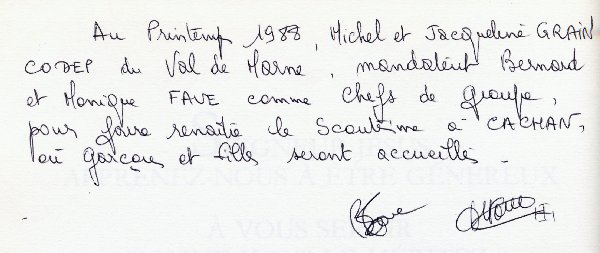 Au Printemps 1988, Michel et Jacqueline GRAIN
CODEP du Val de Marne, mandatent Bernard
et Monique FAVE comme chefs de groupe,
pour faire renaître le Scoutisme à CACHAN,
où garçons et filles seront accueillis.